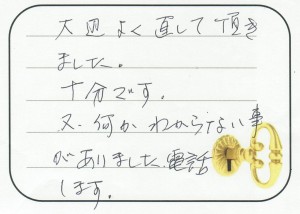 大辺よく直して頂き
ました。
十分です。
又何かわからない事
がありました、電話
します。